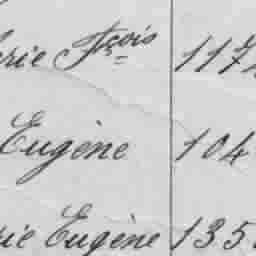 rie Fçois 117
Eugène 104
rie Eugène 135